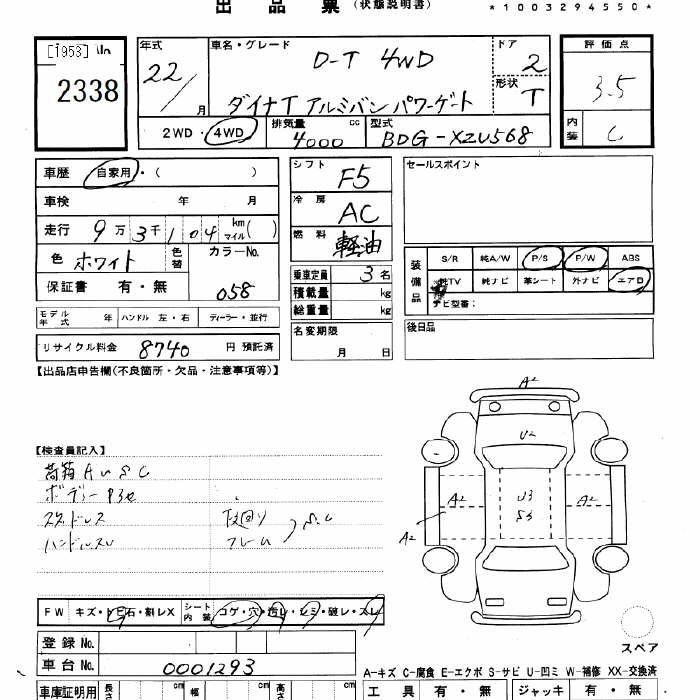 出品票 (状態説明書)
*1003294550*
[1953] 2338
年式 22/ 月
車名・グレード D-T 4WD
ダイナT アルミバン パワーゲート
ドア 2
形状 T
評価点 3.5
内装 C
2WD・4WD
排気量 4000 cc
型式 BDG-XZU568
車歴 自家用・( )
車検 年 月
走行 9万3千104 km マイル( )
色 ホワイト 色替 カラーNo. 058
保証書 有・無
シフト F5
冷房 AC
燃料 軽油
乗車定員 3名
積載量 kg
総重量 kg
セールスポイント
装備品 S/R 純A/W P/S P/W ABS
純TV 純ナビ 革シート 外ナビ エアB
ナビ型番:
モデル年式 年 ハンドル 左・右 ディーラー・並行
名変期限 月 日
後日品
リサイクル料金 8740 円 預託済
【出品店申告欄(不良箇所・欠品・注意事項等)】
A2
U2
A2 U3 S3 A2
A2
【検査員記入】
荷箱AUSC
ボディーキズ
スタッドレス 下回り
ハンドルスレ フレーム } S.C
FW キズ・トビ石・割レX シート内装 コゲ・穴・汚レ・シミ・破レ・スレ
登録No.
車台No. 0001293
スペア
A-キズ C-腐食 E-エクボ S-サビ U-凹ミ W-補修 XX-交換済
車庫証明用 長さ cm 幅 cm 高さ cm
工具 有・無 ジャッキ 有・無